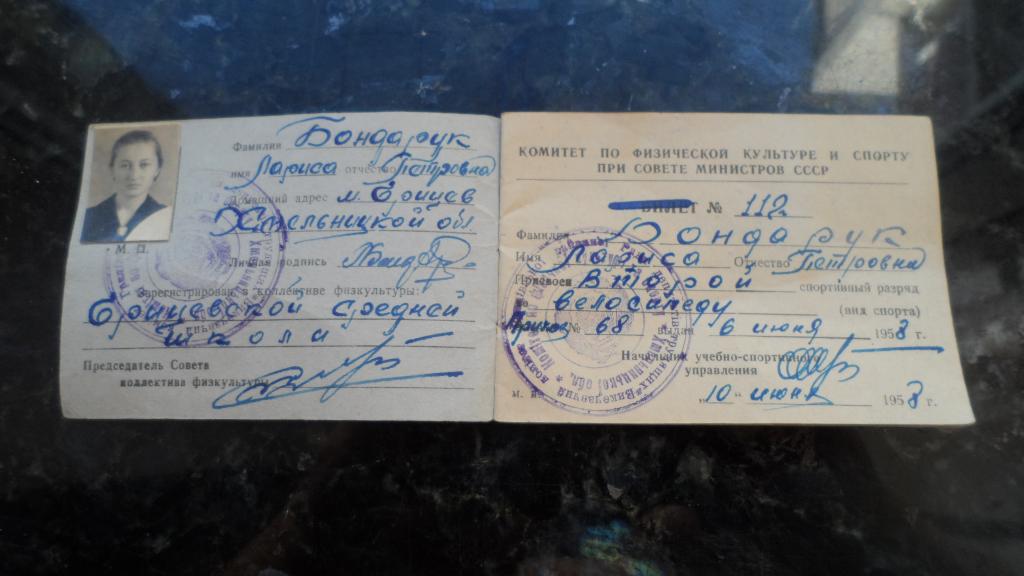 Фамилия Бондарук
имя Лариса отчество Петровна
Домашний адрес м. Ярицев
Хмельницкой обл.
М. П.
Личная подпись
Зарегистрирован в коллективе физкультуры:
средней
школа
Председатель Совета
коллектива физкультуры
КОМИТЕТ ПО ФИЗИЧЕСКОЙ КУЛЬТУРЕ И СПОРТУ
ПРИ СОВЕТЕ МИНИСТРОВ СССР
БИЛЕТ № 112
Фамилия Бондарук
Имя Лариса Отчество Петровна
Присвоен Второй спортивный разряд
велосипеду (вид спорта)
Приказ № 68 выдан 6 июня 1958 г.
Начальник учебно-спортивного
управления
М. П. „10" июня 1958 г.